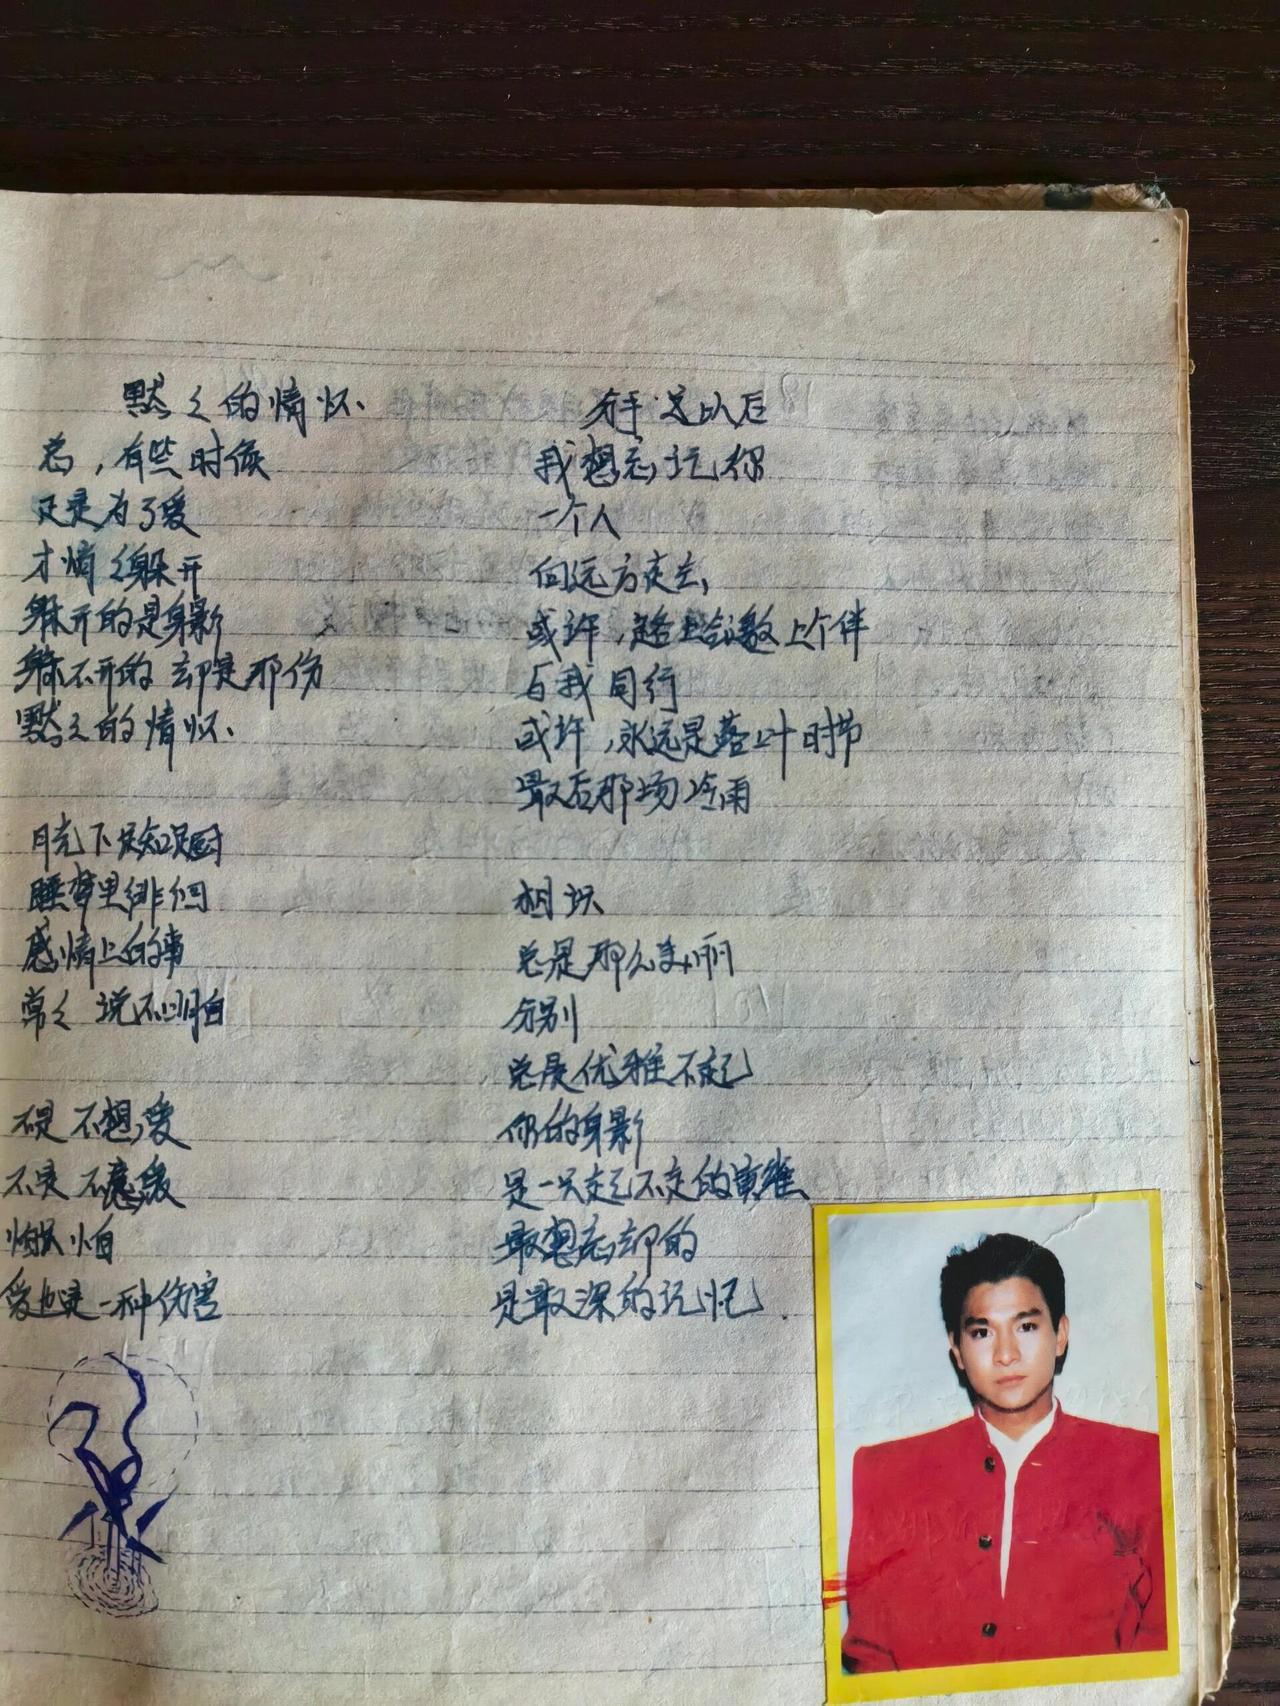 默々的情怀
总,有些时候
正是为了爱
才悄々躲开
躲开的是身影
躲不开的 却是那份
默々的情怀、
月光下踟蹰
睡梦里徘徊
感情上的事
常々 说不明白
不是不想爱
不是不愿爱
怕只怕
爱也是一种伤害
分手之以后
我想忘记你
一个人
向远方走去,
或许,走路上会邀上个伴
与我同行
或许,永远是落叶时节
最后那场冷雨
相识
总是那么美丽
分别
总是优雅不起
你的身影
是一只赶不走的黄雀
最想忘却的
是最深的记忆.